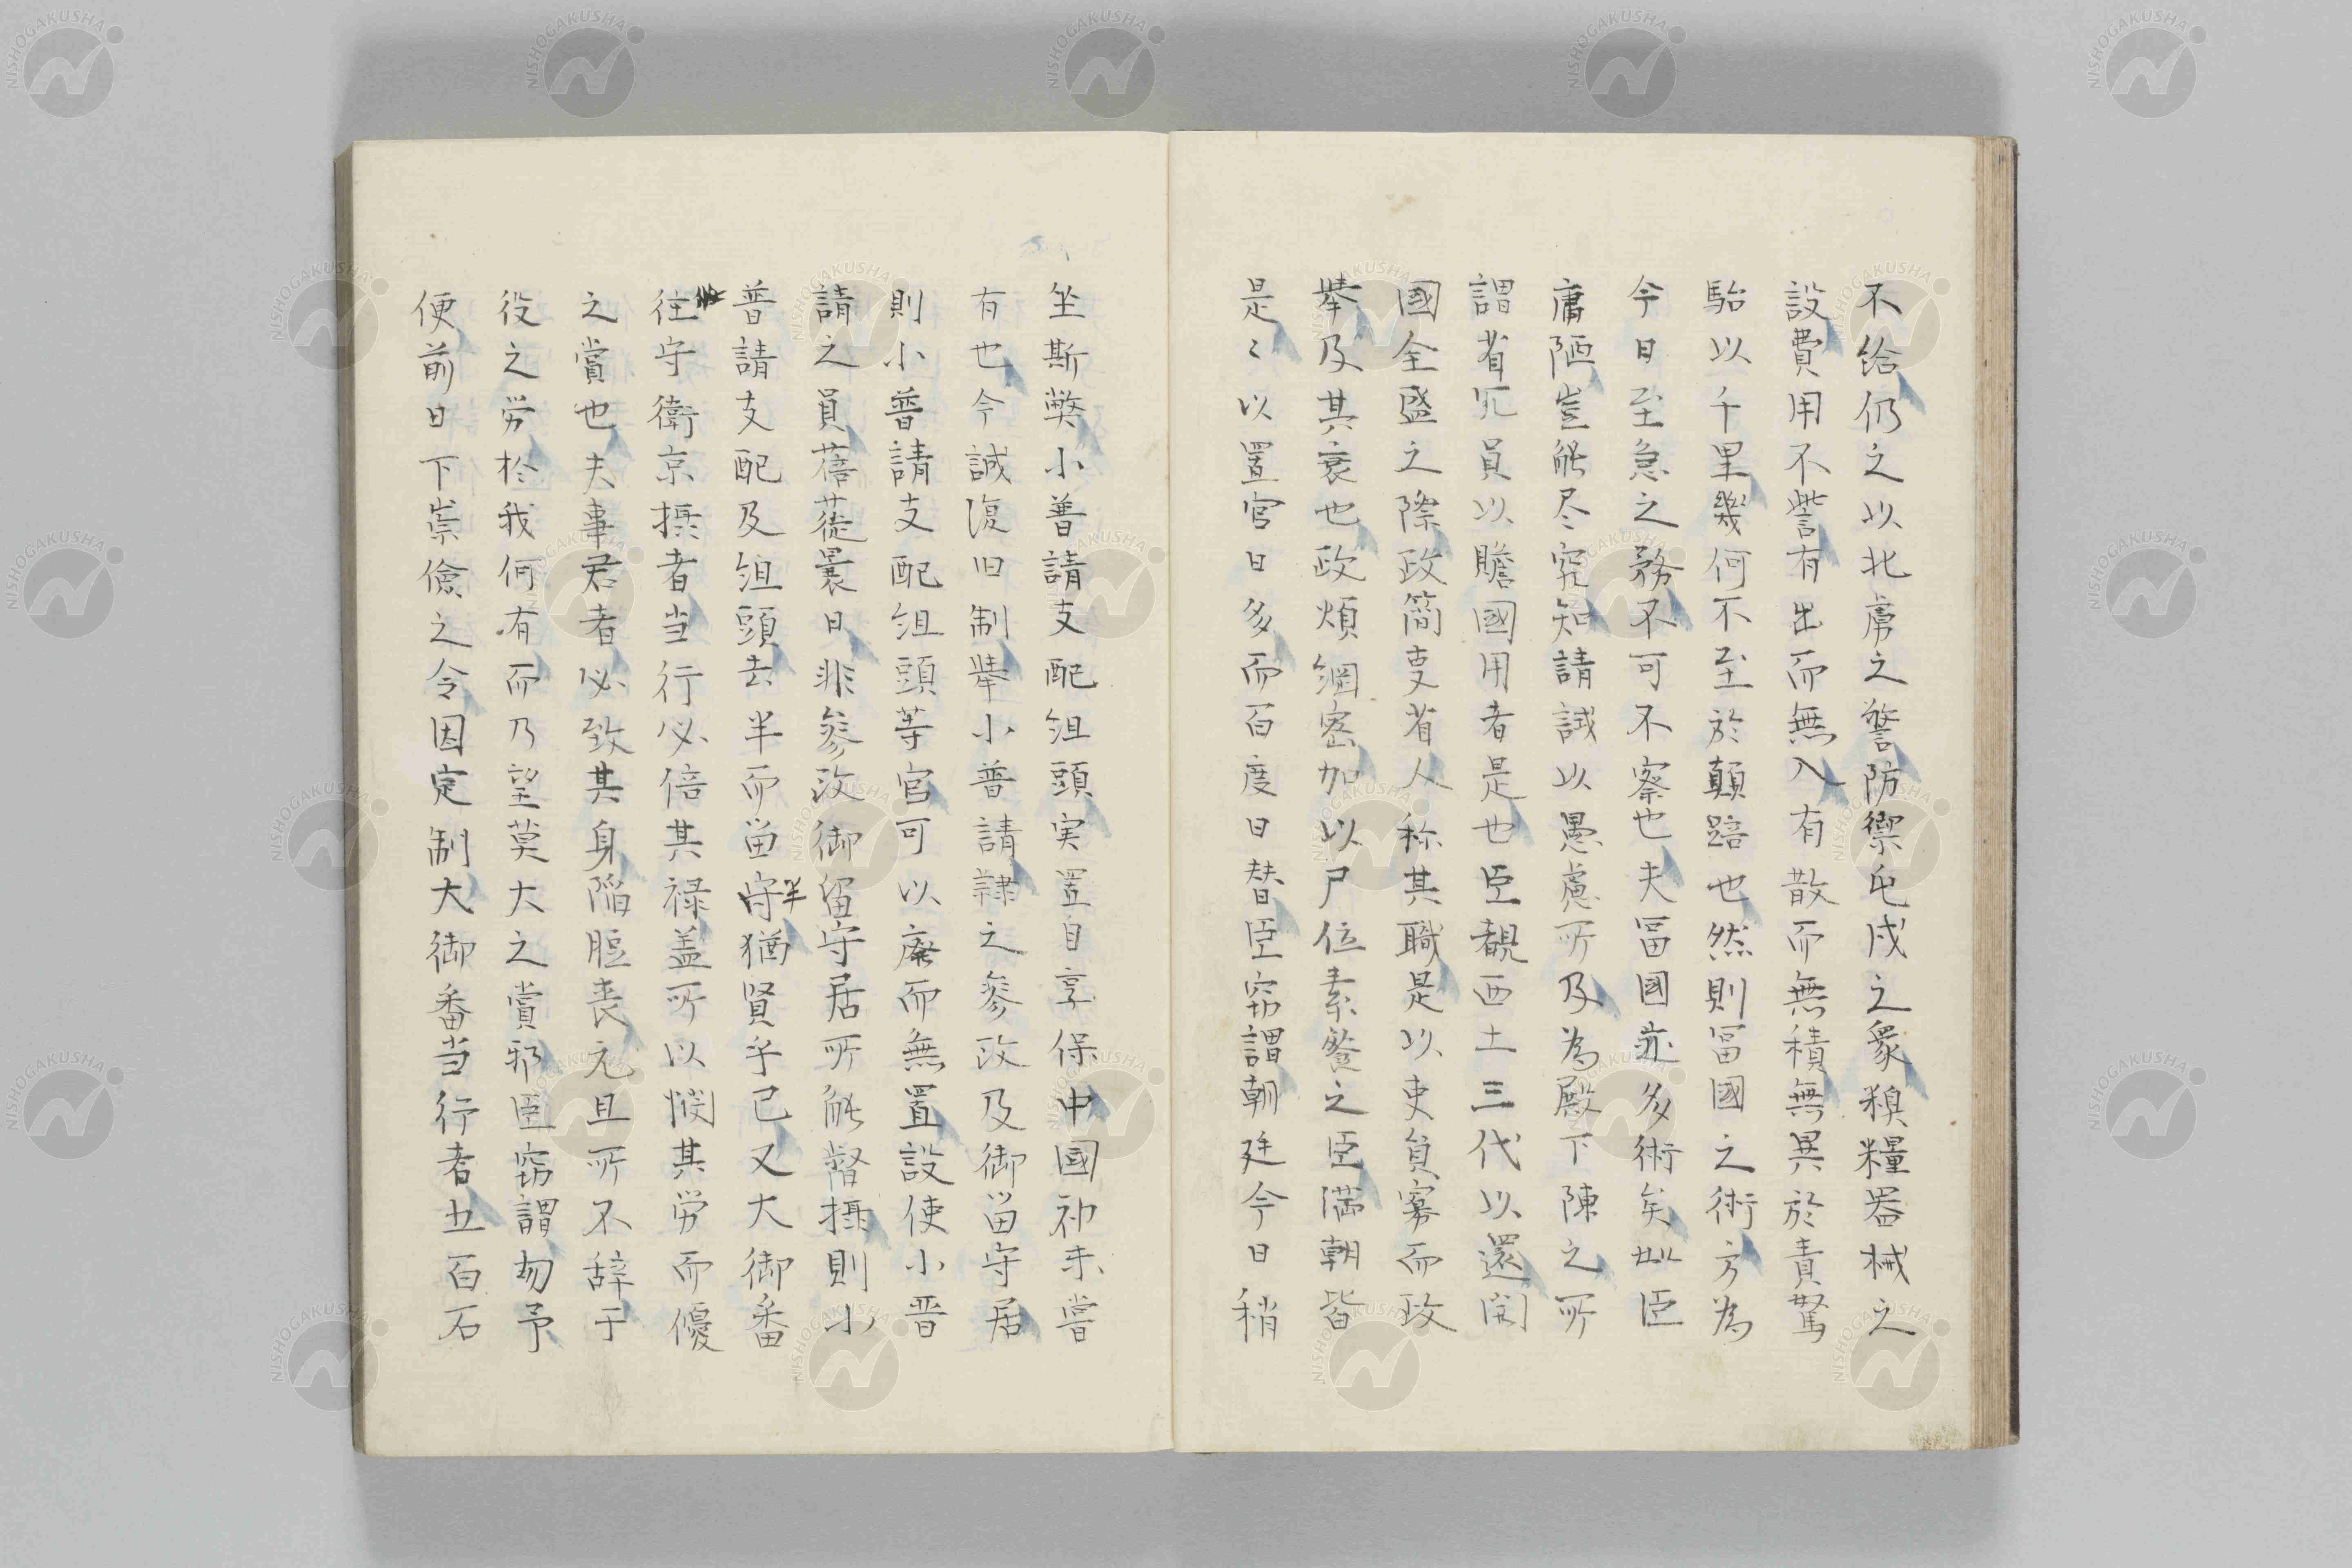 不給仍之以北虜之警防禦屯戍之衆糗糧器械之
設費用不訾有出而無入有散而無積無異於責駑
駘以千里幾何不至於顛踣也然則冨國之術方為
今日至急之務不可不察也夫冨國亦多術矣如臣
庸陋豈能尽究知請試以愚慮所及為殿下陳之所
謂省冗員以贍國用者是也臣覩西土三代以還開
國全盛之際政簡吏省人称其職是以吏負寡而政
擧及其衰也政煩網密加以尸位素餐之臣満朝皆
是〻以置官日多而百度日替臣窃謂朝廷今日稍
坐斯弊小普請支配組頭実置自享保中國初未嘗
有也今誠復旧制擧小普請隷之参政及御留守居
則小普請支配組頭等官可以廃而無置設使小普
請之員蓓蓰曩日非参政御留守居所能督摂則小
普請支配及組頭去半而留半猶賢乎已又大御番
往守衛京摂者当行必倍其禄盖所以憫其労而優
之賞也夫事君者必致其身陥脰喪元且所不辞于
役之労於我何有而乃望莫大之賞邪臣窃謂勿予
便前日下崇儉之令因定制大御番当行者五百石
NISHOGAKUSHA